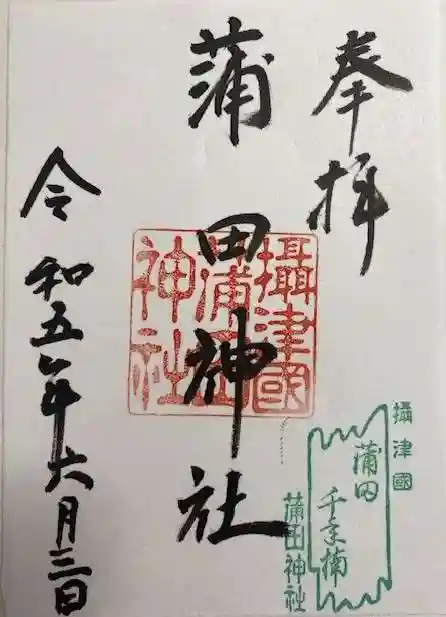 奉拝
蒲田神社
攝津國
蒲田
神社
令和五年六月三日
攝津國
蒲田
千年楠
蒲田神社